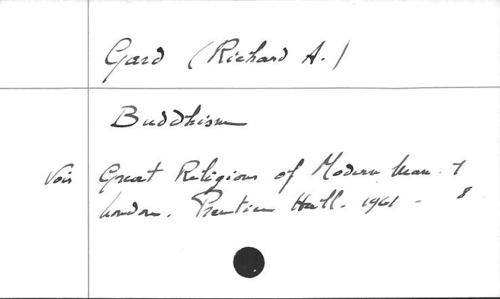 Gard (Richard A.)
Buddhism
Voir Great Religions of Modern Man. 7
London. Prentice Hall. 1961 - 8